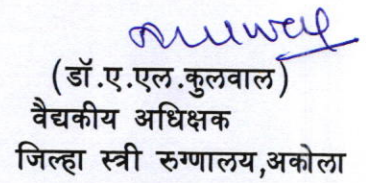 (डॉ.ए.एल.कुलवाल)
वैद्यकीय अधिक्षक
जिल्हा स्त्री रुग्णालय,अकोला